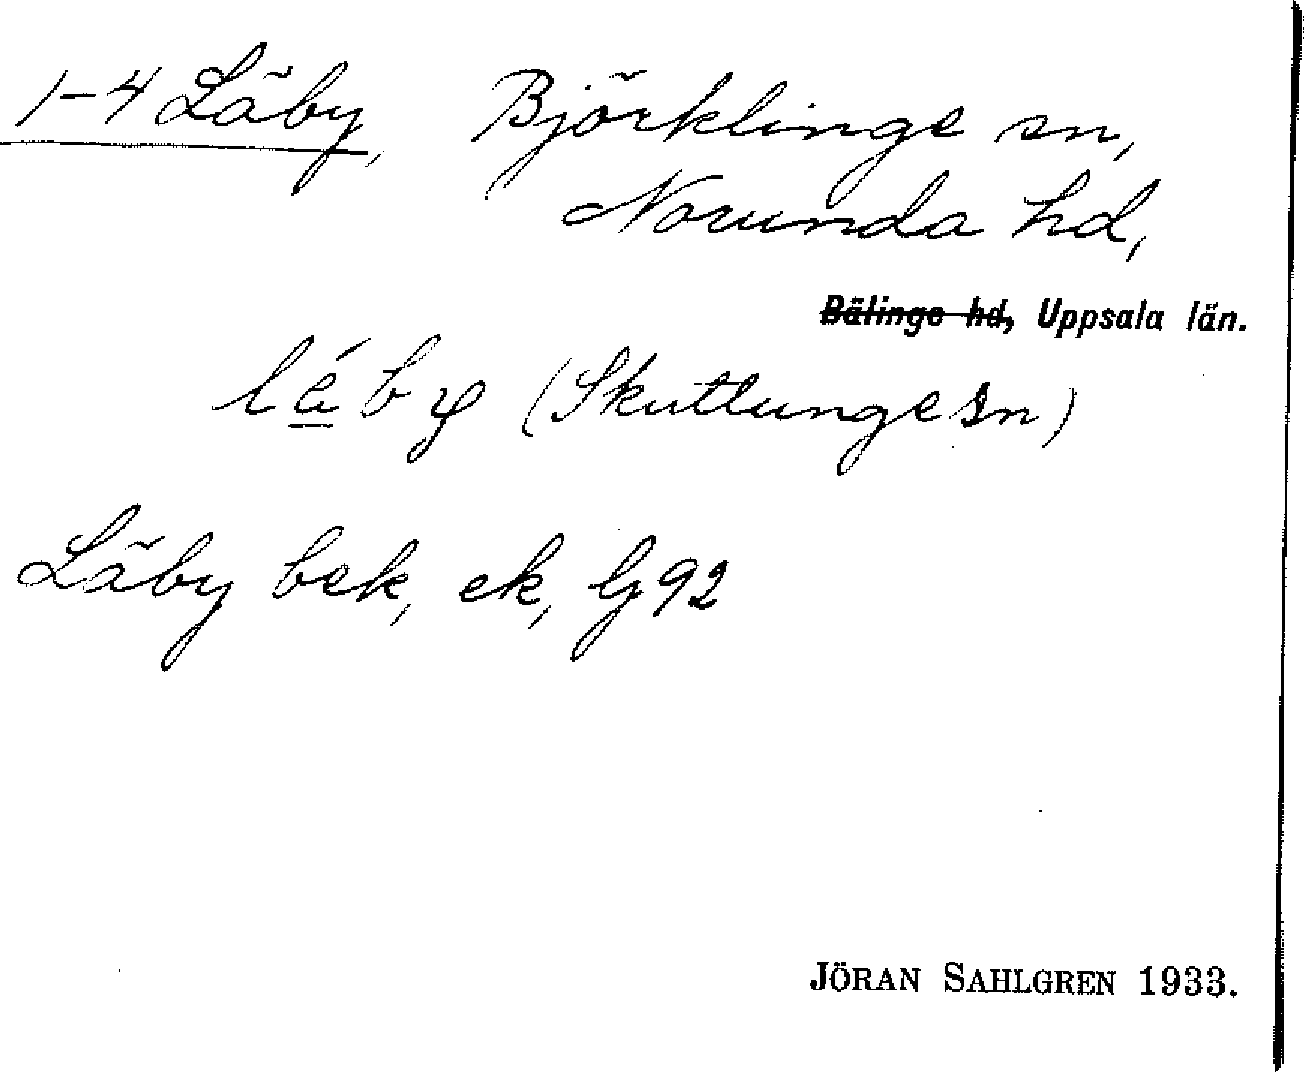 1-4 Läby, Björklinge sn,
Norunda hd,
Bälinge hd, Uppsala län.
lǽby (Skuttunge sn)
Läby bek, ek, lj 92
JÖRAN SAHLGREN 1933.